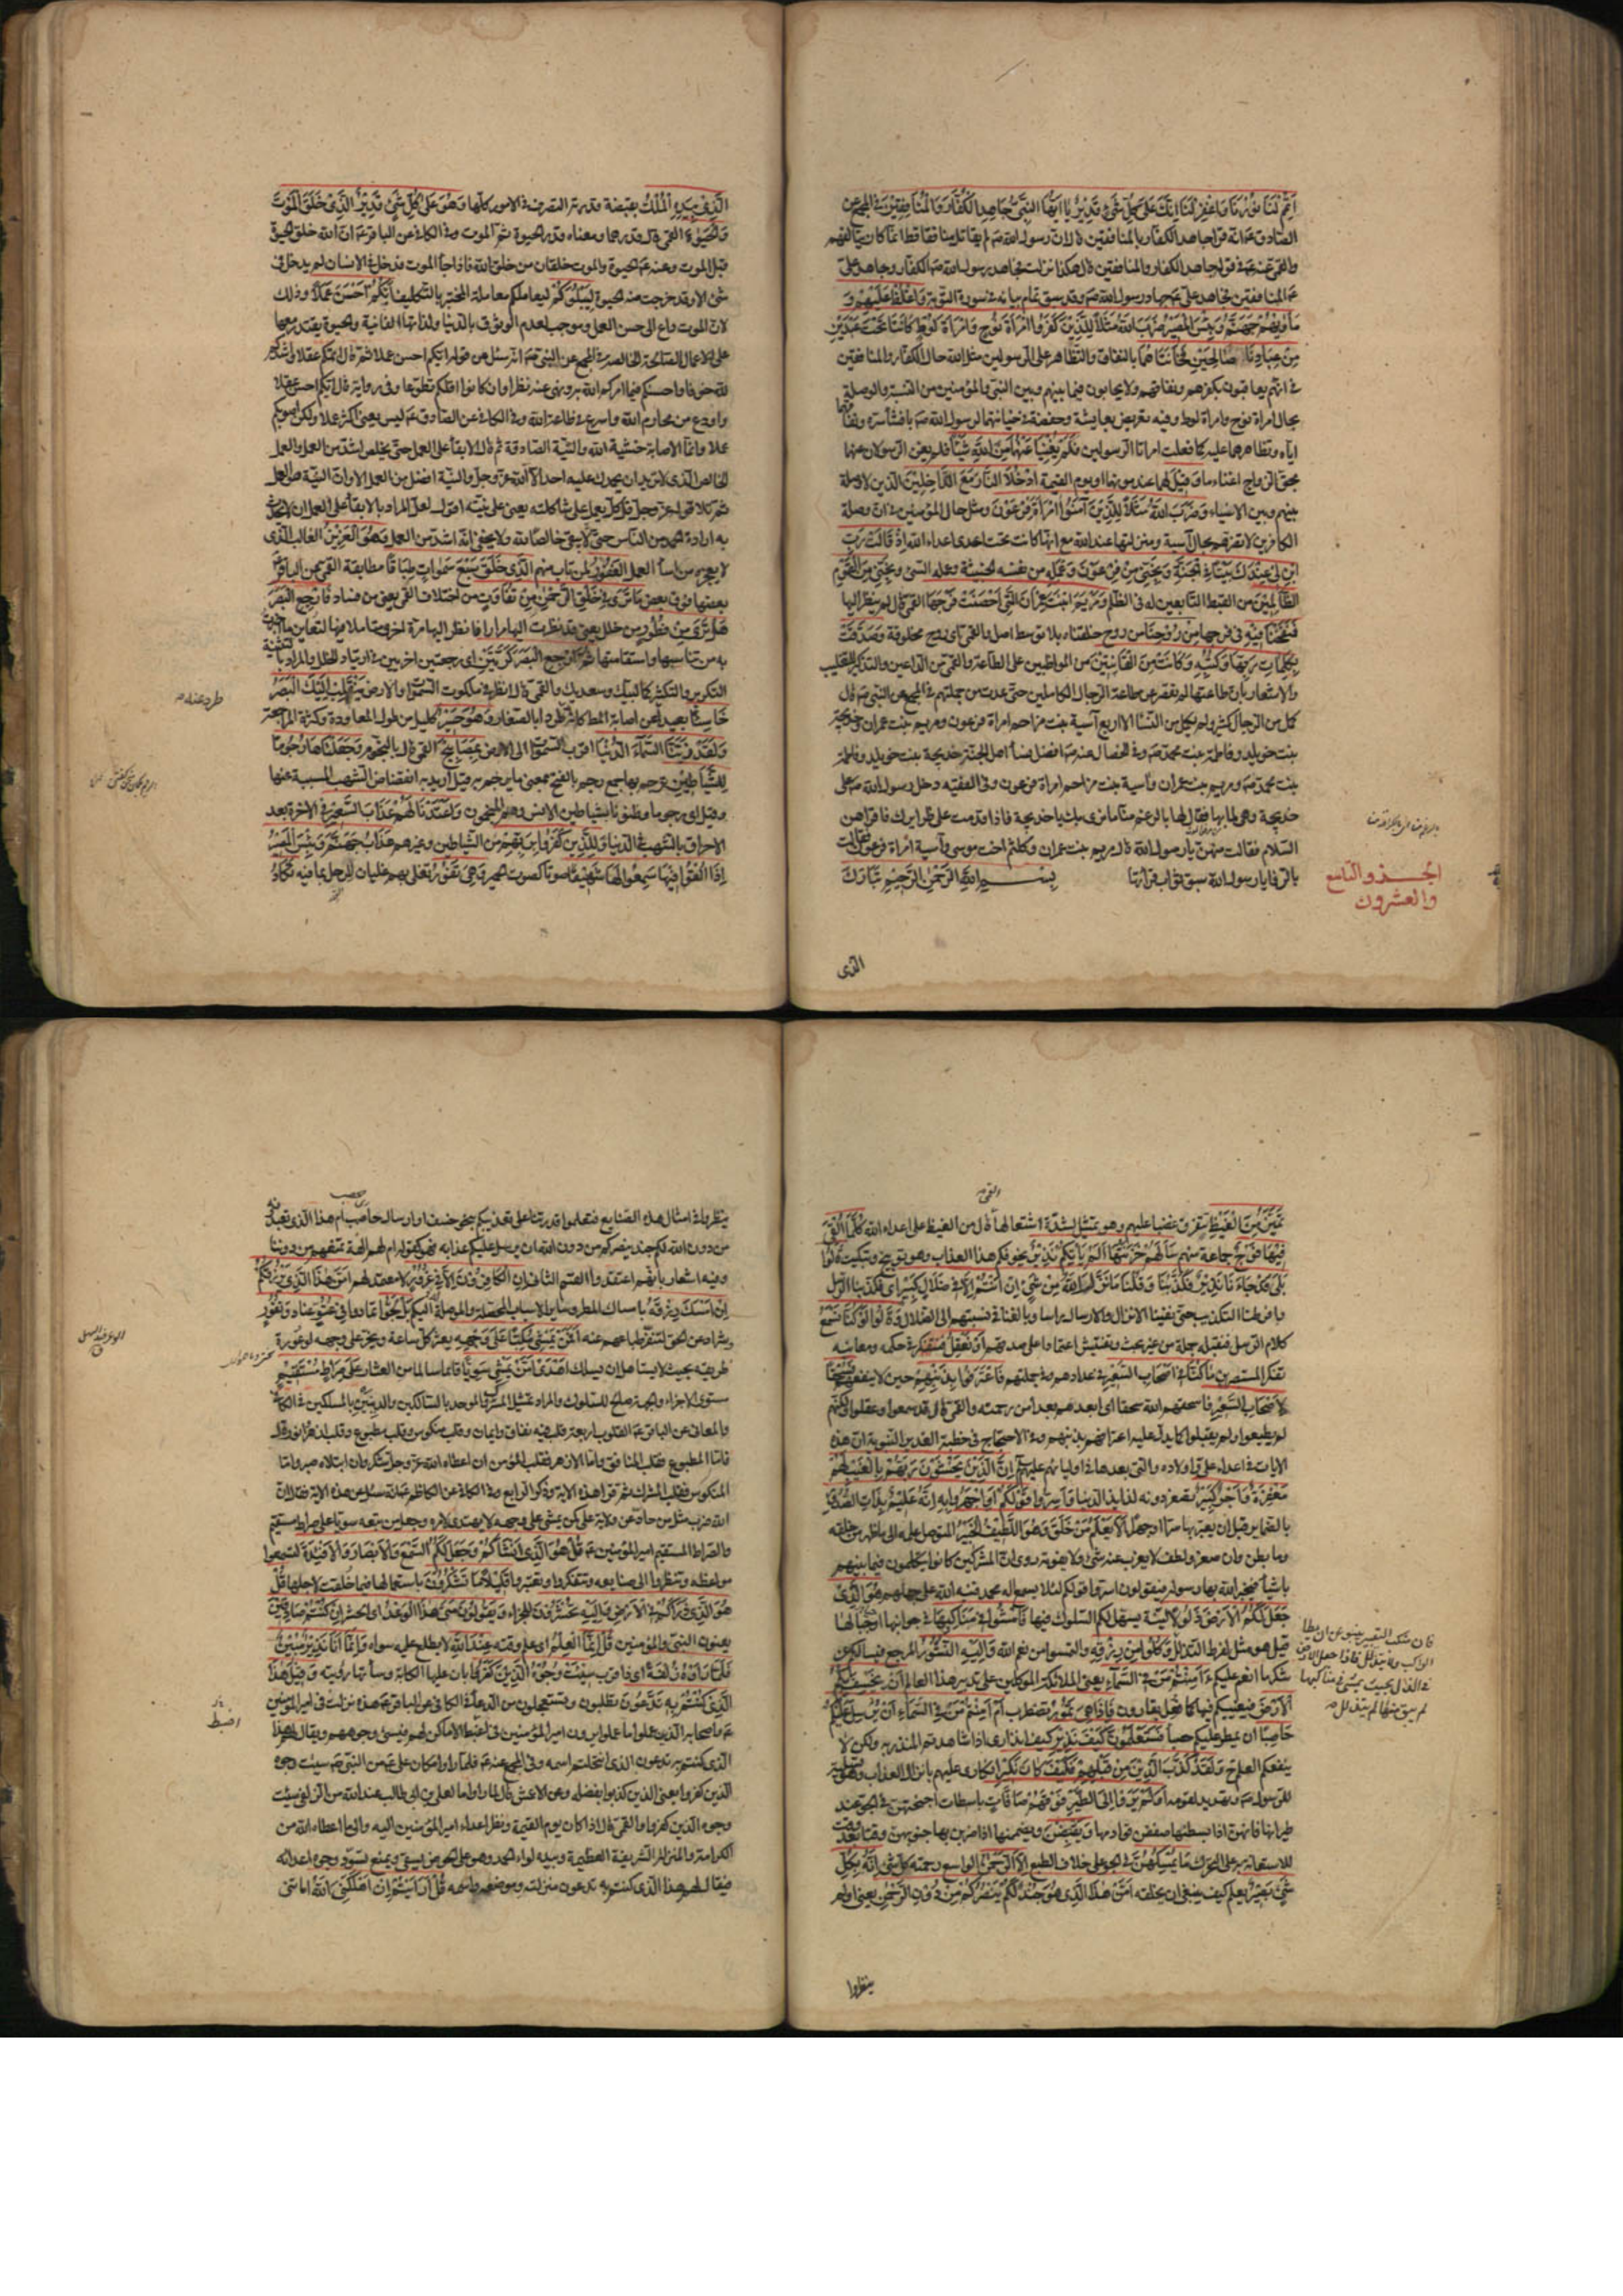 أَتْمِمْ لَنَا نُورَنَا وَاغْفِرْ لَنَا إِنَّكَ عَلَى كُلِّ شَيْءٍ قَدِيرٌ يَا أَيُّهَا النَّبِيُّ جَاهِدِ الْكُفَّارَ وَالْمُنَافِقِينَ في المجمع عن
الصادق عم انه قرا جاهد الكفار بالمنافقين قال ان رسول الله صم لم يقاتل منافقا قط انما كان يتألفهم
والقمي عنه عم في قوله جاهد الكفار والمنافقين قال هكذا نزلت فجاهد رسول الله صم الكفار وجاهد علي
عم المنافقين فجاهد علي عم جهاد رسول الله صم وقد سبق تمام بيانه في سورة التوبة وَاغْلُظْ عَلَيْهِمْ وَ
مَأْوَاهُمْ جَهَنَّمُ وَبِئْسَ الْمَصِيرُ ضَرَبَ اللَّهُ مَثَلًا لِلَّذِينَ كَفَرُوا امْرَأَةَ نُوحٍ وَامْرَأَةَ لُوطٍ كَانَتَا تَحْتَ عَبْدَيْنِ
مِنْ عِبَادِنَا صَالِحَيْنِ فَخَانَتَاهُمَا بالنفاق والتظاهر على الرسولين مثل الله حال الكفار والمنافقين
في انهم يعاقبون بكفرهم ونفاقهم ولا يحابون فيما بينهم وبين النبي والمؤمنين من النسبة والوصلة
بحال امراة نوح وامراة لوط وفيه تعريض بعايشة وحفصة في خيانتهما لرسول الله صم بافشاء سره ونفاقهما
اياه وتظاهرهما عليه كما فعلت امراتا الرسولين فَلَمْ يُغْنِيَا عَنْهُمَا مِنَ اللَّهِ شَيْئًا فلم يغن الرسولان عنهما
بحق الزواج اغناء ما وَقِيلَ لهما عند موتهما او يوم القيمة ادْخُلَا النَّارَ مَعَ الدَّاخِلِينَ الذين لا وصلة
بينهم وبين الانبياء وَضَرَبَ اللَّهُ مَثَلًا لِلَّذِينَ آمَنُوا امْرَأَةَ فِرْعَوْنَ ومثل حال المؤمنين في ان وصلة
الكافرين لا تضرهم بحال آسية ومنزلتها عند الله مع انها كانت تحت اعدى اعداء الله إِذْ قَالَتْ رَبِّ
ابْنِ لِي عِنْدَكَ بَيْتًا فِي الْجَنَّةِ وَنَجِّنِي مِنْ فِرْعَوْنَ وَعَمَلِهِ من نفسه الخبيثة وعمله السيئ وَنَجِّنِي مِنَ الْقَوْمِ
الظَّالِمِينَ من القبط التابعين له في الظلم وَمَرْيَمَ ابْنَتَ عِمْرَانَ الَّتِي أَحْصَنَتْ فَرْجَهَا القمي قال لم ينظر اليها
فَنَفَخْنَا فِيهِ في فرجها مِنْ رُوحِنَا من روح خلقناه بلا توسط اصل والقمي اى روح مخلوقة وَصَدَّقَتْ
بِكَلِمَاتِ رَبِّهَا وَكُتُبِهِ وَكَانَتْ مِنَ الْقَانِتِينَ من المواظبين على الطاعة والقمي من الداعين والتذكير للتغليب
والاشعار بان طاعتها لم تقصر عن طاعة الرجال الكاملين حتى عدت من جملتهم في المجمع عن النبي صم قال
كمل من الرجال كثير ولم يكمل من النساء الا اربع آسية بنت مزاحم امراة فرعون ومريم بنت عمران وخديجة
بنت خويلد وفاطمة بنت محمد صم وفي الخصال عنه صم افضل نساء اهل الجنة خديجة بنت خويلد وفاطمة
بنت محمد صم ومريم بنت عمران وآسية بنت مزاحم امراة فرعون وفي الفقيه دخل رسول الله صم على
خديجة وهي لما بها فقال لها بالرغم منا ما نرى بك يا خديجة فاذا قدمت على ظرايرك فاقراهن
السلام فقالت من هن يا رسول الله قال مريم بنت عمران وكلثم اخت موسى وآسية امراة فرعون فقالت
بالرفا يا رسول الله سبق ثواب قراءتها بسم الله الرحمن الرحيم تَبَارَكَ
الجزو التاسع
والعشرون
الذى
الَّذِي بِيَدِهِ الْمُلْكُ بقبضة قدرته التصرف في الامور كلها وَهُوَ عَلَى كُلِّ شَيْءٍ قَدِيرٌ الَّذِي خَلَقَ الْمَوْتَ
وَالْحَيَوةَ القمي قال قدرهما ومعناه قدر الحيوة ثم الموت وفي الكافي عن الباقر عم ان الله خلق الحيوة
قبل الموت وعنه عم الحيوة والموت خلقان من خلق الله فاذا جاء الموت فدخل في الانسان لم يدخل في
شئ الا وقد خرجت منه الحيوة لِيَبْلُوَكُمْ ليعاملكم معاملة المختبر بالتكليف أَيُّكُمْ أَحْسَنُ عَمَلًا وذلك
لان الموت داع الى حسن العمل وموجب لعدم الوثوق بالدنيا ولذاتها الفانية والحيوة يقتدر معها
على الاعمال الصالحة الخالصة في المجمع عن النبي صم انه سئل عن قوله ايكم احسن عملا ثم قال اتمكم عقلا واشدكم
لله خوفا واحسنكم فيما امركم الله به ونهى عنه نظرا وان كانوا اقلكم تطوعا وفي رواية قال ايكم احسن عقلا
واورع من محارم الله واسرع في طاعة الله وفي الكافي عن الصادق عم ليس يعنى اكثر عملا ولكن اصوبكم
عملا وانما الاصابة خشية الله والنية الصادقة ثم قال الابقاء على العمل حتى يخلص اشد من العمل والعمل
الخالص الذى لا تريد ان يحمدك عليه احد الا الله عز وجل والنية افضل من العمل الا وان النية هى العمل
ثم تلا قوله عز وجل قل كل يعمل على شاكلته يعنى على نيته اقول لعل المراد بالابقاء على العمل ان لا يحدث
به ارادة الحمد من الناس حتى يبقى خالصا لله ولا يخفى انه اشد من العمل وَهُوَ الْعَزِيزُ الغالب الذى
لا يعجزه من اساء العمل الْغَفُورُ لمن تاب منهم الَّذِي خَلَقَ سَبْعَ سَمَوَاتٍ طِبَاقًا مطابقة القمي عن الباقر
بعضها فوق بعض مَا تَرَى فِي خَلْقِ الرَّحْمَنِ مِنْ تَفَاوُتٍ من اختلاف القمي يعنى من فساد فَارْجِعِ الْبَصَرَ
هَلْ تَرَى مِنْ فُطُورٍ من خلل يعنى قد نظرت اليها مرارا فانظر اليها مرة اخرى متاملا فيها لتعاين ما اخبرت
به من تناسبها واستقامتها ثُمَّ ارْجِعِ الْبَصَرَ كَرَّتَيْنِ اى رجعتين اخريين في ارتياد الخلل والمراد بالتثنية
التكرير والتكثير كما لبيك وسعديك والقمي قال انظر في ملكوت السموات والارض يَنْقَلِبْ إِلَيْكَ الْبَصَرُ
خَاسِئًا بعيدا عن اصابة المط كانه طرد طردا بالصغار وَهُوَ حَسِيرٌ كليل من طول المعاودة وكثرة المراجعة
وَلَقَدْ زَيَّنَّا السَّمَاءَ الدُّنْيَا اقرب السموات الى الارض بِمَصَابِيحَ القمي قال بالنجوم وَجَعَلْنَاهَا رُجُومًا
لِلشَّيَاطِينِ يرجم بها جمع رجم بالفتح بمعنى ما يرجم به قيل اريد به انقضاض الشهب المسببة عنها
وقيل اى رجوما وظنونا لشياطين الانس وهم المنجمون وَأَعْتَدْنَا لَهُمْ عَذَابَ السَّعِيرِ في الآخرة بعد
الاحراق بالشهب في الدنيا وَلِلَّذِينَ كَفَرُوا بِرَبِّهِمْ من الشياطين وغيرهم عَذَابُ جَهَنَّمَ وَبِئْسَ الْمَصِيرُ
إِذَا أُلْقُوا فِيهَا سَمِعُوا لَهَا شَهِيقًا صوتا كصوت الحمير وَهِيَ تَفُورُ تغلى بهم غليان المرجل بما فيه تَكَادُ
تَمَيَّزُ مِنَ الْغَيْظِ تتفرق غضبا عليهم وهو تمثيل لشدة اشتعالها قال من الغيظ على اعداء الله كُلَّمَا أُلْقِيَ
فِيهَا فَوْجٌ جماعة منهم سَأَلَهُمْ خَزَنَتُهَا أَلَمْ يَأْتِكُمْ نَذِيرٌ يخوفكم هذا العذاب وهو توبيخ وتبكيت قَالُوا
بَلَى قَدْ جَاءَنَا نَذِيرٌ فَكَذَّبْنَا وَقُلْنَا مَا نَزَّلَ اللَّهُ مِنْ شَيْءٍ إِنْ أَنْتُمْ إِلَّا فِي ضَلَالٍ كَبِيرٍ اى فكذبنا الرسل
وافرطنا في التكذيب حتى نفينا الانزال والارسال راسا وبالغنا في نسبتهم الى الضلال وَقَالُوا لَوْ كُنَّا نَسْمَعُ
كلام الرسل فنقبله جملة من غير بحث وتفتيش اعتمادا على صدقهم أَوْ نَعْقِلُ فنتفكر في حكمه ومعانيه
تفكر المستبصرين مَا كُنَّا فِي أَصْحَابِ السَّعِيرِ في عدادهم وفي جملتهم فَاعْتَرَفُوا بِذَنْبِهِمْ حين لا ينفعهم فَسُحْقًا
لِأَصْحَابِ السَّعِيرِ فاسحقهم الله سحقا اى ابعدهم بعدا من رحمته والقمي قال قد سمعوا وعقلوا ولكنهم
لم يطيعوا ولم يقبلوا كما يدل عليه اعترافهم بذنبهم وفي الاحتجاج في خطبة الغدير النبوية ان هذه
الايات في اعداء علي واولاده والتى بعدها في اوليائهم عليهم إِنَّ الَّذِينَ يَخْشَوْنَ رَبَّهُمْ بِالْغَيْبِ لَهُمْ
مَغْفِرَةٌ وَأَجْرٌ كَبِيرٌ تصغر دونه لذايذ الدنيا وَأَسِرُّوا قَوْلَكُمْ أَوِ اجْهَرُوا بِهِ إِنَّهُ عَلِيمٌ بِذَاتِ الصُّدُورِ
بالضماير قبل ان يعبر بها سرا او جهرا أَلَا يَعْلَمُ مَنْ خَلَقَ وَهُوَ اللَّطِيفُ الْخَبِيرُ المتوصل علمه الى ما ظهر من خلقه
وما بطن وان صغر ولطف لا يعزب عنه شئ ولا يفوته روى ان المشركين كانوا يتكلمون فيما بينهم
باشياء فيخبر الله بها رسوله فيقولون اسروا قولكم لئلا يسمع اله محمد فنبه الله على جهلهم هُوَ الَّذِي
جَعَلَ لَكُمُ الْأَرْضَ ذَلُولًا لينة يسهل لكم السلوك فيها فَامْشُوا فِي مَنَاكِبِهَا في جوانبها او جبالها
قيل هو مثل لفرط التذلل وَكُلُوا مِنْ رِزْقِهِ والتمسوا من نعم الله وَإِلَيْهِ النُّشُورُ المرجع فيسالكم عن
شكر ما انعم عليكم ءَأَمِنْتُمْ مَنْ فِي السَّمَاءِ يعنى الملائكة الموكلين على تدبير هذا العالم أَنْ يَخْسِفَ بِكُمُ
الْأَرْضَ فيغيبكم فيها كما فعل بقارون فَإِذَا هِيَ تَمُورُ تضطرب أَمْ أَمِنْتُمْ مَنْ فِي السَّمَاءِ أَنْ يُرْسِلَ عَلَيْكُمْ
حَاصِبًا ان يمطر عليكم حصباء فَسَتَعْلَمُونَ كَيْفَ نَذِيرِ كيف انذارى اذا شاهدتم المنذر به ولكن لا
ينفعكم العلم ح وَلَقَدْ كَذَّبَ الَّذِينَ مِنْ قَبْلِهِمْ فَكَيْفَ كَانَ نَكِيرِ انكارى عليهم بانزال العذاب وهو تسلية
للرسول صم وتهديد لقومه أَوَلَمْ يَرَوْا إِلَى الطَّيْرِ فَوْقَهُمْ صَافَّاتٍ باسطات اجنحتهن في الجو عند
طيرانها فانهن اذا بسطنها صففن قوادمها وَيَقْبِضْنَ ويضممنها اذا ضربن بها جنوبهن وقتا بعد وقت
للاستعانة به على التحرك مَا يُمْسِكُهُنَّ في الجو على خلاف الطبع إِلَّا الرَّحْمَنُ الواسع رحمته كل شئ إِنَّهُ بِكُلِّ
شَيْءٍ بَصِيرٌ يعلم كيف ينبغى ان يخلقه أَمَّنْ هَذَا الَّذِي هُوَ جُنْدٌ لَكُمْ يَنْصُرُكُمْ مِنْ دُونِ الرَّحْمَنِ يعنى اولم
فان منكب البعير ينبو عن ان يطأه
الراكب ولا يتذلل فاذا جعل الارض
في الذل بحيث يمشى في مناكبها
لم يبق منها لم يتذلل
ينظروا
ينظروا في امثال هذه الصنايع فتعلموا قدرتنا على تعذيبكم بنحو خسف او ارسال حاصب ام هذا الذى تعبدونه
من دون الله لكم جند ينصركم من دون الله ان يرسل عليكم عذابه فهو كقوله ام لهم الهة تمنعهم من دوننا
وفيه اشعار بانهم اعتقدوا القسم الثانى إِنِ الْكَافِرُونَ إِلَّا فِي غُرُورٍ لا معتمد لهم أَمَّنْ هَذَا الَّذِي يَرْزُقُكُمْ
إِنْ أَمْسَكَ رِزْقَهُ بامساك المطر وساير الاسباب المحصلة والموصلة له اليكم بَلْ لَجُّوا تمادوا فِي عُتُوٍّ عناد وَنُفُورٍ
وشراد عن الحق لتنفر طباعهم عنه أَفَمَنْ يَمْشِي مُكِبًّا عَلَى وَجْهِهِ يعثر كل ساعة ويخر على وجهه لوعورة
طريقه بحيث لا يستاهل ان يسلك أَهْدَى أَمَّنْ يَمْشِي سَوِيًّا قائما سالما من العثار عَلَى صِرَاطٍ مُسْتَقِيمٍ
مستوى الاجزاء والجهة صالح للسلوك والمراد تمثيل المشرك والموحد بالسالكين والدينين بالمسلكين في الكافي
والمعانى عن الباقر عم القلوب اربعة قلب فيه نفاق وايمان وقلب منكوس وقلب مطبوع وقلب ازهر انور قال
فاما المطبوع فقلب المنافق واما الازهر فقلب المؤمن ان اعطاه الله عز وجل شكر وان ابتلاه صبر واما
المنكوس فقلب المشرك ثم قرا هذه الاية وذكر الرابع وفي الكافي عن الكاظم عم انه سئل عن هذه الاية فقال ان
الله ضرب مثل من حاد عن ولاية علي كمن يمشى على وجهه لا يهتدى لامره وجعل من تبعه سويا على صراط مستقيم
والصراط المستقيم امير المؤمنين عم قُلْ هُوَ الَّذِي أَنْشَأَكُمْ وَجَعَلَ لَكُمُ السَّمْعَ وَالْأَبْصَارَ وَالْأَفْئِدَةَ لتسمعوا
مواعظه وتنظروا الى صنايعه وتتفكروا وتعتبروا قَلِيلًا مَا تَشْكُرُونَ باستعمالها فيما خلقت لاجلها قُلْ
هُوَ الَّذِي ذَرَأَكُمْ فِي الْأَرْضِ وَإِلَيْهِ تُحْشَرُونَ للجزاء وَيَقُولُونَ مَتَى هَذَا الْوَعْدُ اى الحشر إِنْ كُنْتُمْ صَادِقِينَ
يعنون النبي والمؤمنين قُلْ إِنَّمَا الْعِلْمُ اى علم وقته عِنْدَ اللَّهِ لا يطلع عليه سواه وَإِنَّمَا أَنَا نَذِيرٌ مُبِينٌ
فَلَمَّا رَأَوْهُ زُلْفَةً اى ذا قرب سِيئَتْ وُجُوهُ الَّذِينَ كَفَرُوا بان عليها الكابة وساءتها رؤيته وَقِيلَ هَذَا
الَّذِي كُنْتُمْ بِهِ تَدَّعُونَ تطلبون وتستعجلون من الدعاء في الكافي عن الباقر عم هذه نزلت في امير المؤمنين
عم واصحابه الذين عملوا ما عملوا يرون امير المؤمنين في اغبط الاماكن لهم فيسئ وجوههم ويقال لهم هذا
الذى كنتم به تدعون الذى انتحلتم اسمه وفي المجمع عنه عم فلما راوا مكان علي عم من النبي صم سيئت وجوه
الذين كفروا يعنى الذين كذبوا بفضله وعن الاعمش قال لما راوا ما لعلي بن ابى طالب عند الله من الزلفى سيئت
وجوه الذين كفروا والقمي قال اذا كان يوم القيمة ونظر اعداء امير المؤمنين اليه والى ما اعطاه الله من
الكرامة والمنزلة الشريفة العظيمة وبيده لواء الحمد وهو على الحوض يسقى ويمنع تسود وجوه اعدائه
فيقال لهم هذا الذى كنتم به تدعون منزلته وموضعه واسمه قُلْ أَرَأَيْتُمْ إِنْ أَهْلَكَنِيَ اللَّهُ اماتنى